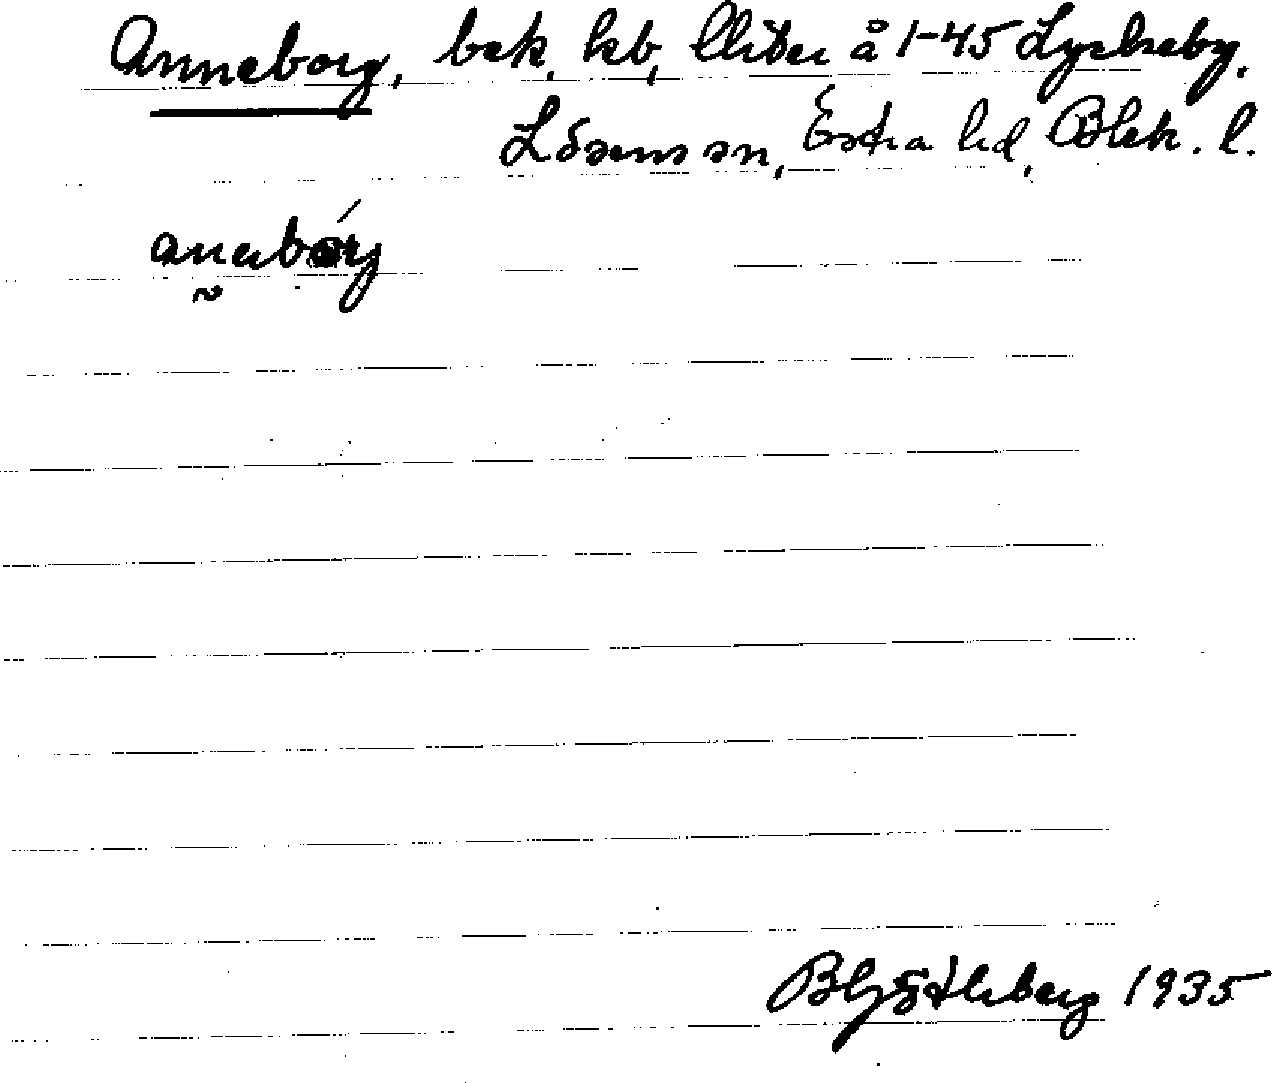 Anneborg, bek. hb, lliden å 1-45 Lyckeby,
Lösens sn, Östra hd, Blek. l.
anabórg
1935